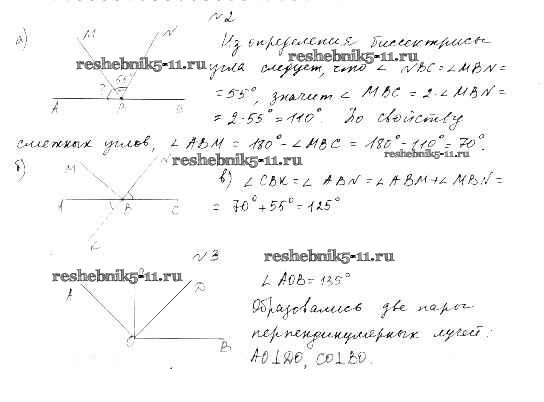 №2
а)
M N
Из определения биссектрисы
reshebnik5-11.ru reshebnik5-11.ru
угла следует, что ∠ NBC = ∠MBN =
55°
?
= 55°, значит ∠ MBC = 2·∠MBN =
A B B
= 2·55° = 110°. По свойству
смежных углов, ∠ ABM = 180° - ∠MBC = 180° - 110° = 70°.
reshebnik5-11.ru
б)
M N
reshebnik5-11.ru
в) ∠CBK = ∠ABN = ∠ABM + ∠MBN =
A B C
= 70° + 55° = 125°
K
№3
reshebnik5-11.ru
reshebnik5-11.ru
∠AOB = 135°
A D
Образовались две пары
перпендикулярных лучей:
O B
AO⊥DO, CO⊥BO.